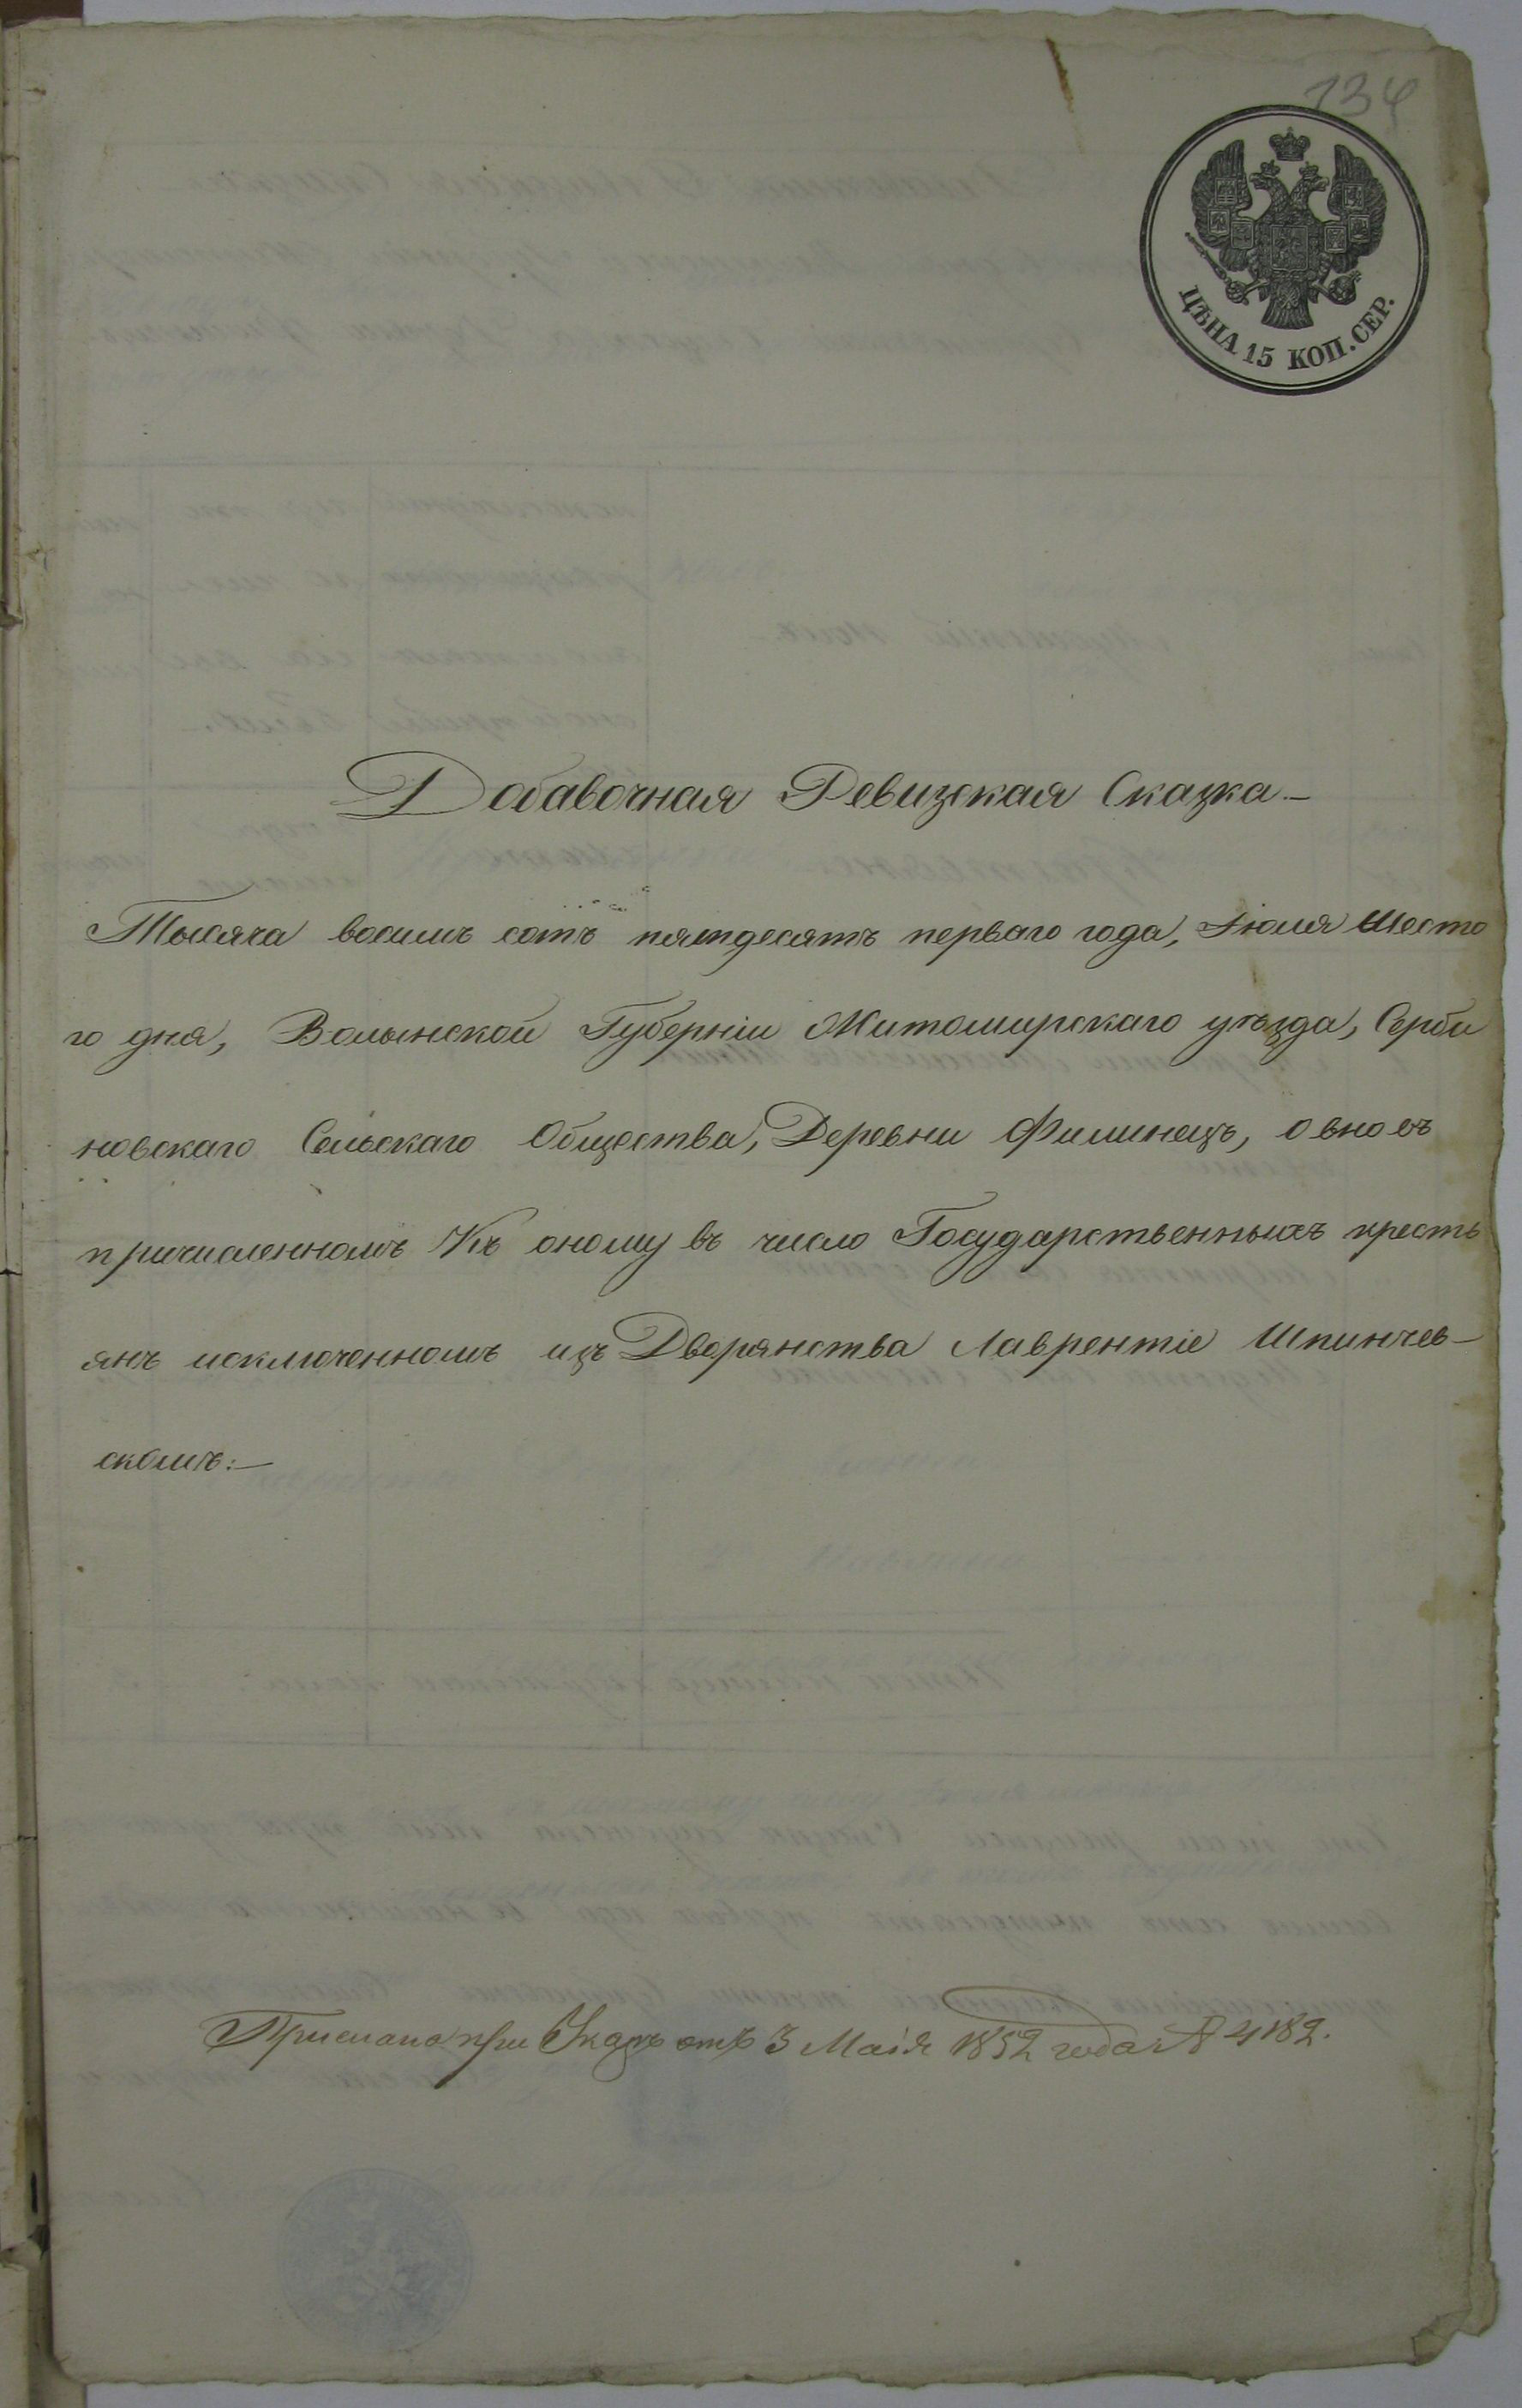 134
ЦѢНА 15 КОП. СЕР.
Добавочная Ревизская Сказка.—
Тысяча восемь сотъ пятдесятъ перваго года, Іюля Шесто
го дня, Волынской Губерніи Житомирскаго уѣзда, Серби
новскаго Сельскаго Общества, Деревни Филинецъ, о вновъ
причисленномъ Къ оному въ число Государственныхъ кресть
янъ исключенномъ изъ Дворянства Лаврентіе Шпинчев-
скомъ:—
Прислана при Указѣ отъ 3 Маія 1852 года № 4182.